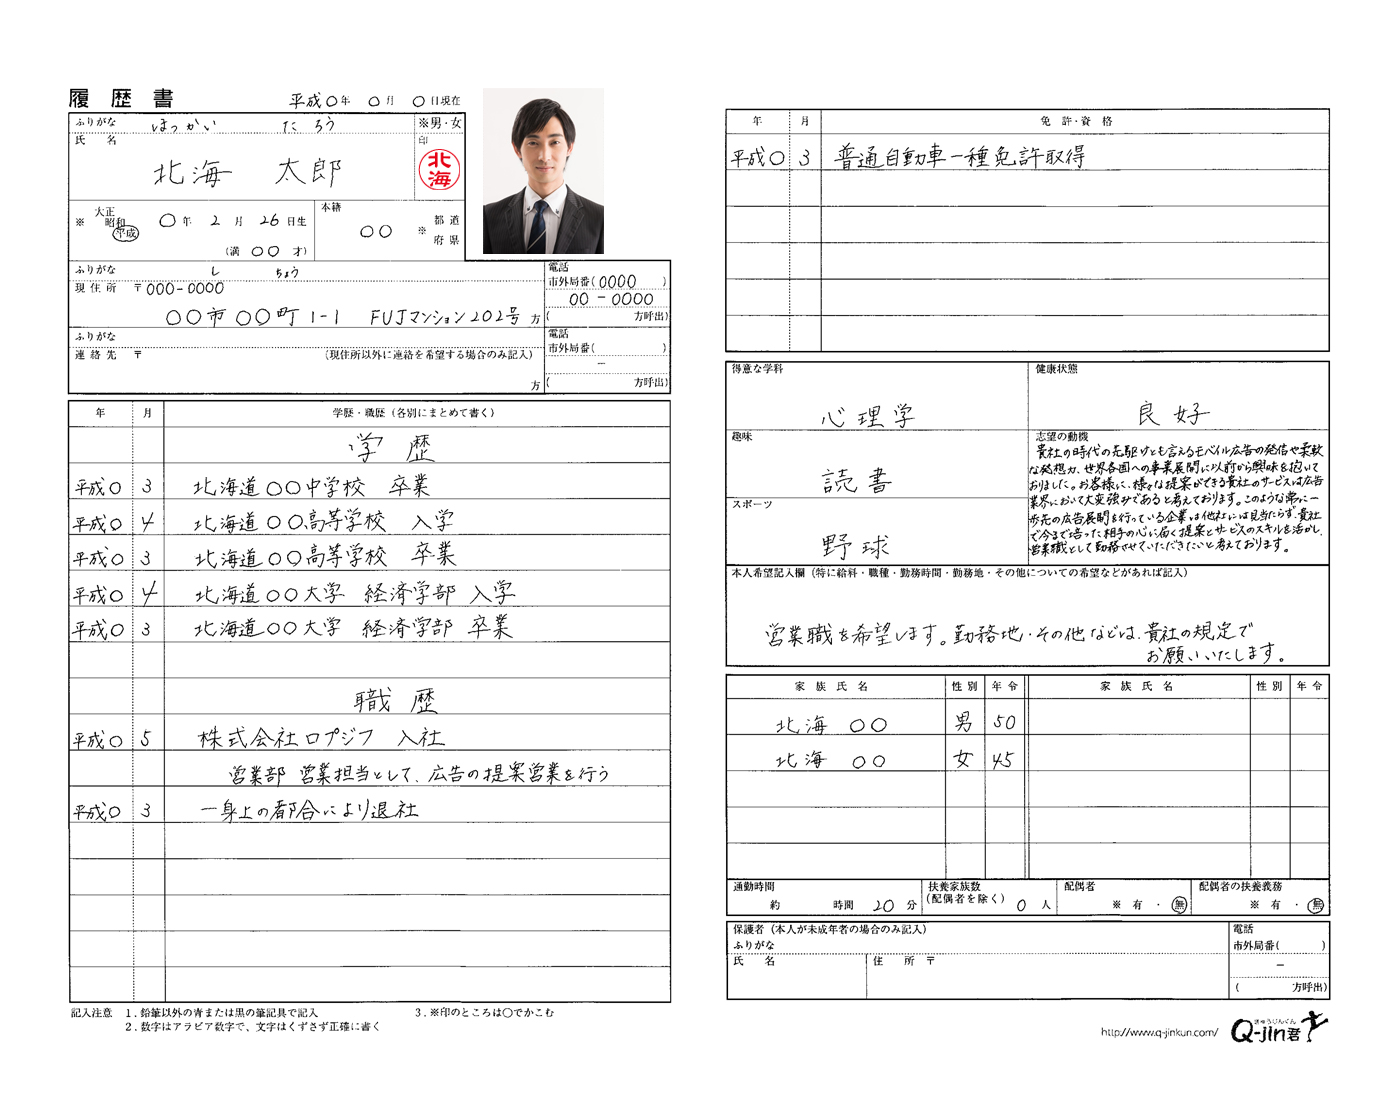 履歴書
平成〇年 〇月 〇日現在
ふりがな ほっかい たろう ※男・女
氏 名 印
北海 太郎
北海
大正
※ 昭和
平成
〇年 2月 26日生
(満 〇〇 才)
本籍
〇〇 ※ 都 道
府 県
ふりがな し ちょう
現住所 〒000-0000
〇〇市〇〇町1-1 FUJマンション202号 方
電話
市外局番(0000 )
00-0000
( 方呼出)
ふりがな
連絡先 〒 (現住所以外に連絡を希望する場合のみ記入)
方
電話
市外局番( )
－
( 方呼出)
年 月 学歴・職歴(各別にまとめて書く)
学 歴
平成〇 3 北海道〇〇中学校 卒業
平成〇 4 北海道〇〇高等学校 入学
平成〇 3 北海道〇〇高等学校 卒業
平成〇 4 北海道〇〇大学 経済学部 入学
平成〇 3 北海道〇〇大学 経済学部 卒業
職 歴
平成〇 5 株式会社ロプジフ 入社
営業部 営業担当として、広告の提案営業を行う
平成〇 3 一身上の都合により退社
記入注意 1.鉛筆以外の青または黒の筆記具で記入 3.※印のところは〇でかこむ
2.数字はアラビア数字で、文字はくずさず正確に書く
年 月 免許・資格
平成〇 3 普通自動車一種免許取得
得意な学科
心理学
健康状態
良好
趣味
読書
スポーツ
野球
志望の動機
貴社の時代の先駆けとも言えるモバイル広告の発信や柔軟
な発想力、世界各国への事業展開に以前から興味を抱いて
おりました。お客様に、様々な提案ができる貴社のサービスは広告
業界において大変強みであると考えております。このような常に一
歩先の広告展開を行っている企業は他社には見当たらず、貴社
で今まで培った相手の心に届く提案とサービスのスキルを活かし、
営業職として勤務させていただきたいと考えております。
本人希望記入欄(特に給料・職種・勤務時間・勤務地・その他についての希望などがあれば記入)
営業職を希望します。勤務地・その他などは、貴社の規定で
お願いいたします。
家族氏名 性別 年令 家族氏名 性別 年令
北海 〇〇 男 50
北海 〇〇 女 45
通勤時間
約 時間 20分
扶養家族数
(配偶者を除く) 0人
配偶者
※ 有・無
配偶者の扶養義務
※ 有・無
保護者(本人が未成年者の場合のみ記入)
ふりがな
氏 名 住 所 〒
電話
市外局番( )
－
( 方呼出)
http://www.q-jinkun.com/
きゅうじんくん
Q-jin君